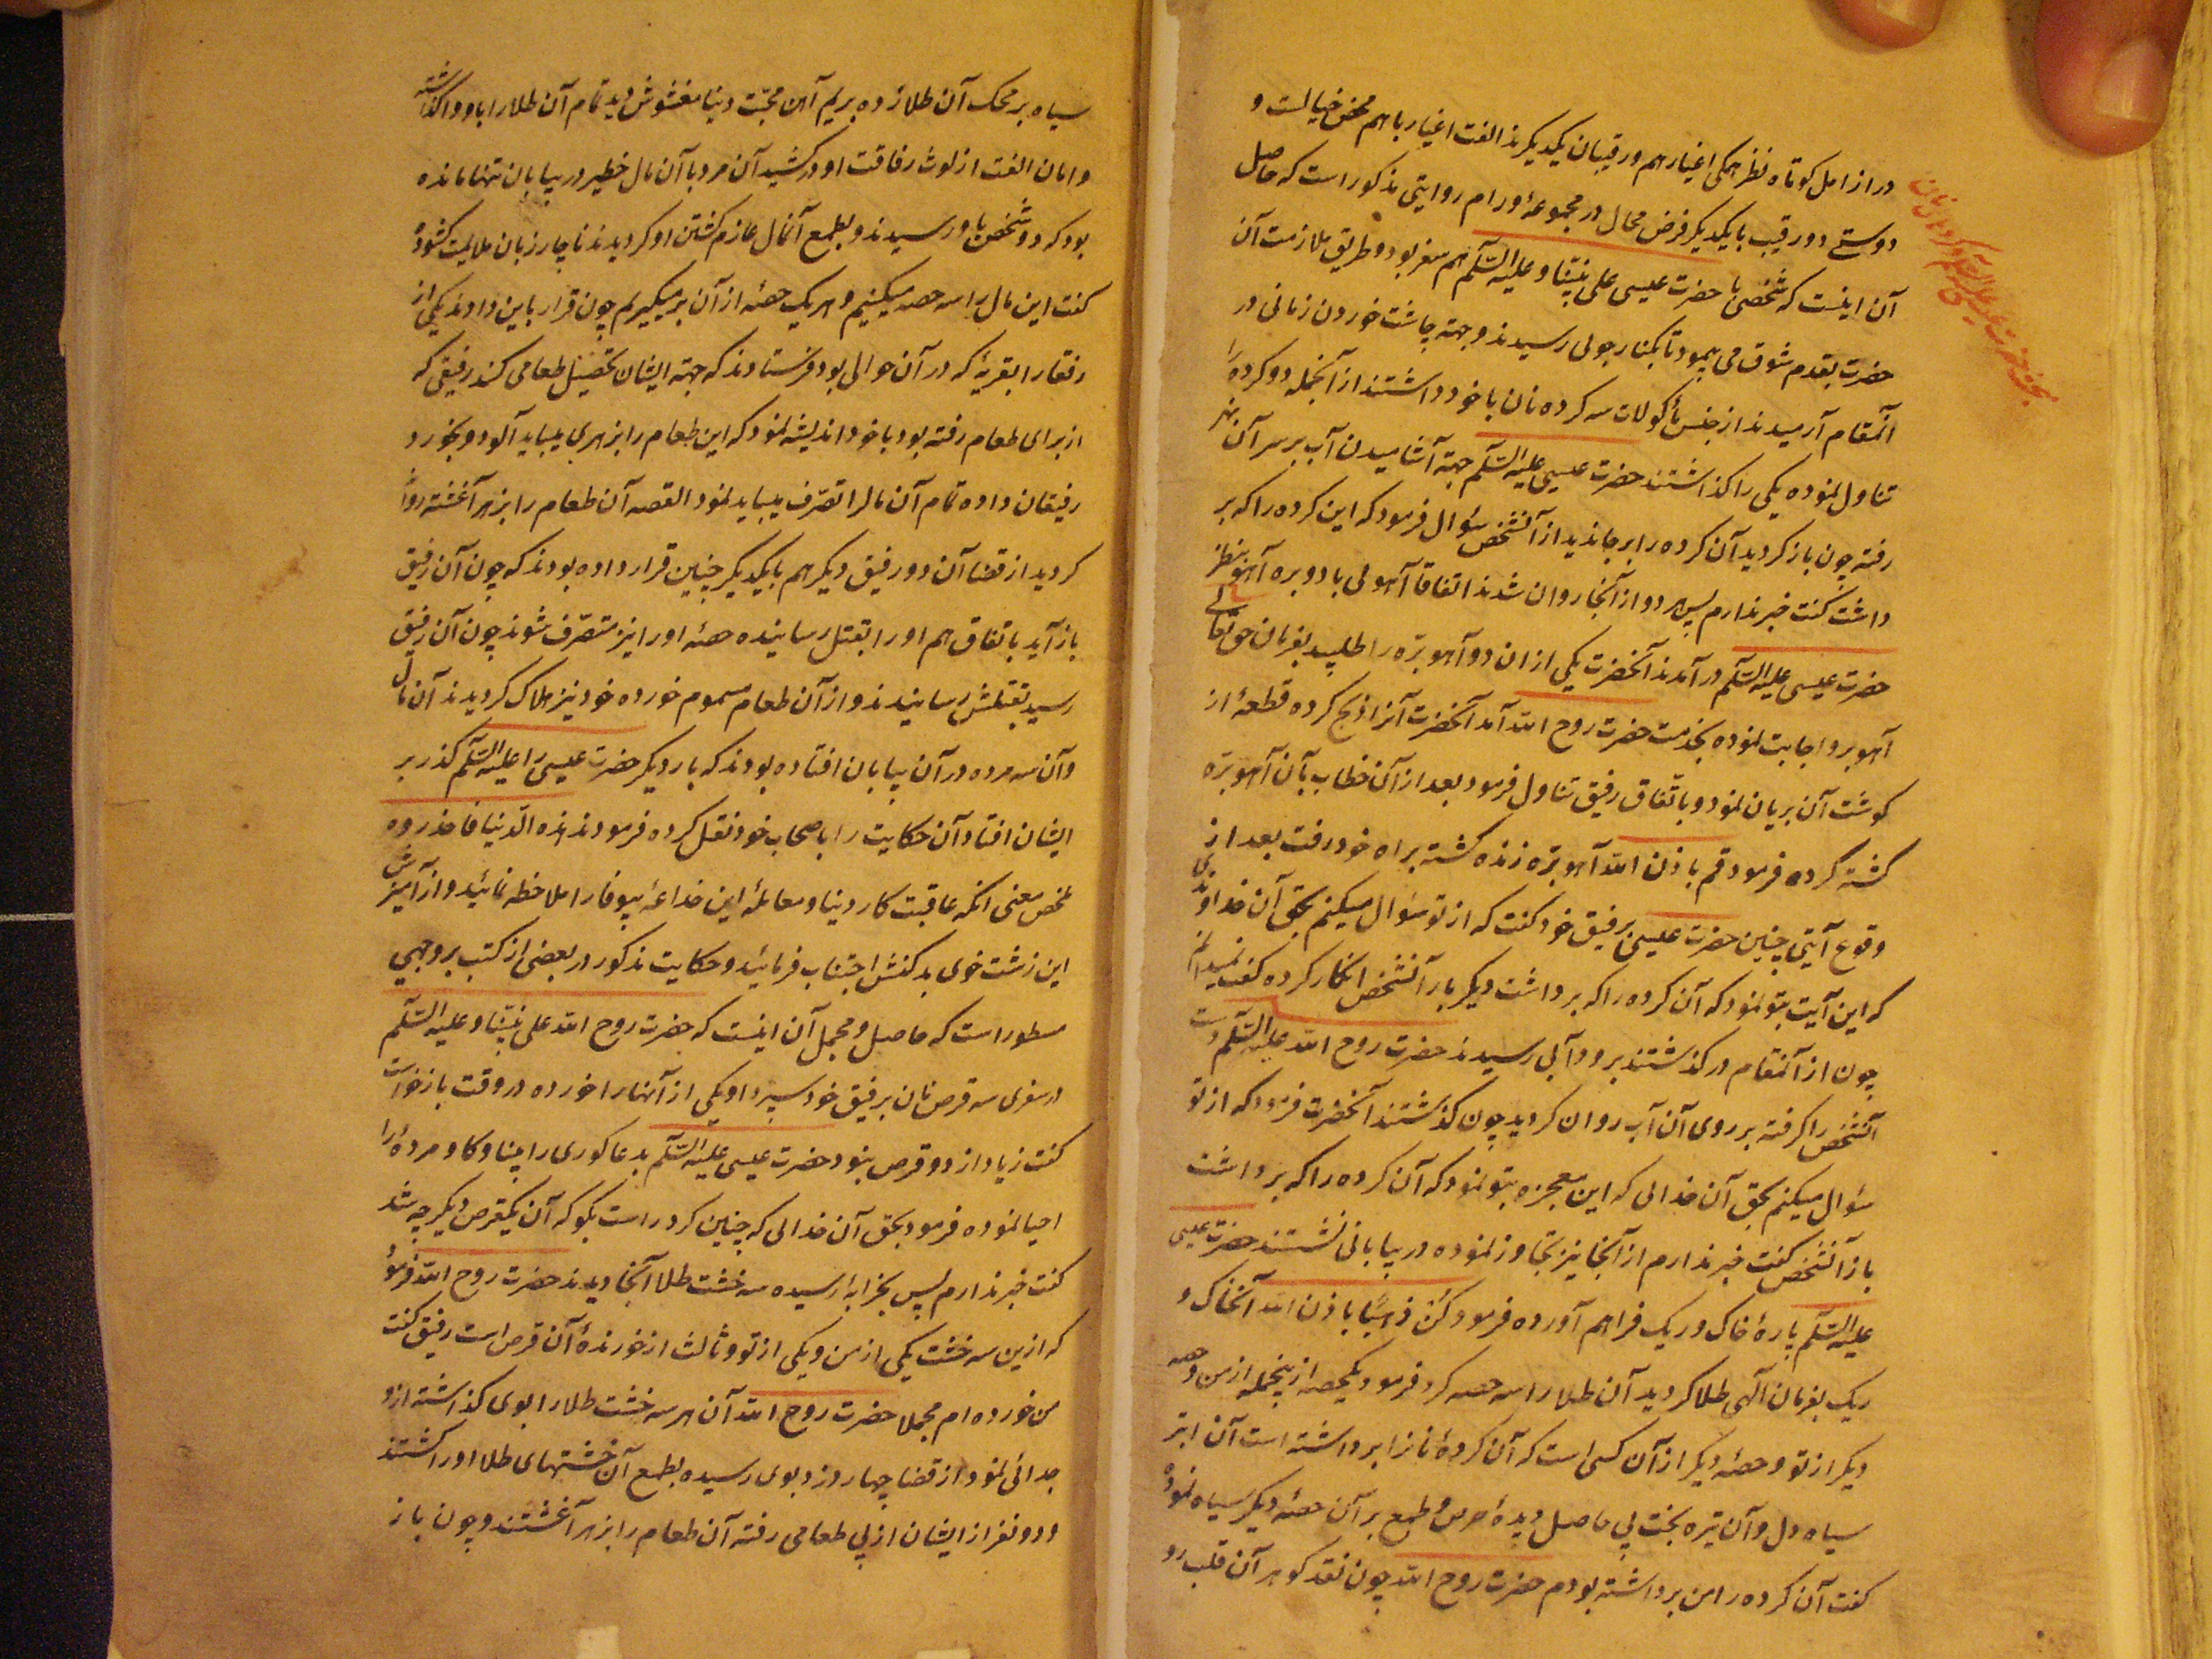 دراز امل کوتاه نظر همگی اغیار هم و رقیبان یکدیگرند الفت اغیار با هم محض خیالست و
دوستی دو رقیب با یکدیگر فرض محال در مجموعهٔ ورام روایتی مذکور است که حاصل
آن اینست که شخصی با حضرت عیسی علی نبینا و علیه السّلم هم سفر بود و طریق ملازمت آن
حضرت بقدم شوق می پیمود تا بکنار جوئی رسیدند و جهة چاشت خوردن زمانی در
آنمقام آرمیدند از جنس مأکولات سه کرده نان با خود داشتند از آنجمله دو کرده را
تناول نموده یکی را گذاشتند حضرت عیسی علیه السّلم جهة آشامیدن آب بر سر آن نهر
رفته چون باز کردید آن کرده را بر جا ندید از آنشخص سؤال فرمود که این کرده را که بر
داشت گفت خبر ندارم پس هر دو از آنجا روان شدند اتفاقا آهوئی با دو بره آهو بنظر
حضرت عیسی علیه السّلم در آمدند آنحضرت یکی از ان دو آهو بره را طلبید بفرمان حق تعالی
آهو بره اجابت نموده بخدمت حضرت روح الله آمد آنحضرت آنرا ذبح کرده قطعهٔ از
کوشت آن بریان نمود و باتفاق رفیق تناول فرمود بعد از آن خطاب بآن آهو بره
کشته کرده فرمود قم باذن الله آهو بره زنده کشته براه خود رفت بعد از
وقوع آیتی چنین حضرت عیسی برفیق خود گفت که از تو سؤال میکنم بحق آن خداوندی
که این آیت بتو نمود که آن کرده را که برداشت دیگر بار آنشخص انکار کرده گفت نمیدانم
چون از آنمقام در گذشتند برود آبی رسیدند حضرت روح الله علیه السّلم دست
آنشخص را کرفته بر روی آن آب روان کردید چون گذشتند آنحضرت فرمود که از تو
سؤال میکنم بحق آن خدائی که این معجزه بتو نمود که آن کرده را که برداشت
باز آنشخص گفت خبر ندارم از آنجا نیز تجاوز نموده در بیابانی نشستند حضرت عیسی
علیه السّلم پارهٔ خاک و ریک فراهم آورده فرمود کن ذهبًا باذن الله آنخاک و
ریک بفرمان آلهی طلا کردید آن طلا را سه حصه کرد فرمود یکحصه از ینجمله از من و حصه
دیگر از تو و حصهٔ دیگر از آن کسی است که آن کردهٔ نانرا برداشته است آن ابتر
سیاه دل و آن تیره بخت بی حاصل دیدهٔ حرص و طمع بر آن حصهٔ دیگر سیاه نموده
گفت آن کرده را من برداشته بودم حضرت روح الله چون نقد کوهر آن قلب رو
سیاه بر محک آن طلا زده بریم آهن محبّت دنیا مغشوش دید تمام آن طلا را باو واگذاشته
و امان الفت از لوث رفاقت او در کشید آن مرد با آن مال خطیر در بیابان تنها مانده
بود که دو شخص باو رسیدند و بطمع آنمال عازم کشتن او کردیدند ناچار زبان ملایمت کشوده
گفت این مال را سه حصه میکنیم و هر یک حصهٔ از آن بر میکیریم چون قرار باین دادند یکی از
رفقا را بقریهٔ که در آن حوالی بود فرستادند که جهة ایشان تحصیل طعامی کند رفیقی که
از برای طعام رفته بود با خود اندیشه نمود که این طعام را بزهری میباید آلود و بخورد
رفیقان داده تمام آن مالرا تصرّف میباید نمود القصه آن طعام را بزهر آغشته روانه
کردید از قضا آن دو رفیق دیگر هم با یکدیگر چنین قرار داده بودند که چون آن رفیق
باز آید باتفاق هم او را بقتل رسانیده حصهٔ او را نیز متصرّف شوند چون آن رفیق
رسید بقتلش رسانیدند و از آن طعام مسموم خورده خود نیز هلاک کردیدند آن مال
و آن سه مرده در آن بیابان افتاده بودند که بار دیگر حضرت عیسی را علیه السّلم گذر بر
ایشان افتاد آن حکایت را باصحاب خود نقل کرده فرمودند هذه الدّنیا فاحذروه
ملخص معنی آنکه عاقبت کار دنیا و معاملهٔ این خداعهٔ بیوفا را ملاحظه نمائید و از آمیزش
این زشت خوی بد کنش اجتناب فرمائید و حکایت مذکور در بعضی از کتب بروجهی
مسطور است که حاصل و مجمل آن اینست که حضرت روح الله علی نبینا و علیه السّلم
در سفری سه قرص نان برفیق خود سپرد او یکی از آنها را خورده در وقت بازخواست
گفت زیاد از دو قرص نبود حضرت عیسی علیه السّلم بدعا کوری را بینا و کاو مردهٔ را
احیا نموده فرمود بحق آن خدائی که چنین کرد راست بکو که آن یکقرص دیگر چه شد
گفت خبر ندارم پس بخرابهٔ رسیده سه خشت طلا آنجا دیدند حضرت روح الله فرمود
که ازین سه خشت یکی از من و یکی از تو و ثالث از خورندهٔ آن قرص است رفیق گفت
من خورده ام مجملا حضرت روح الله آن هر سه خشت طلا را بوی گذاشته ازو
جدائی نمود از قضا چهار دزد بوی رسیده بطمع آن خشتهای طلا او را کشتند
و دو نفر از ایشان از پی طعامی رفته آن طعام را بزهر آغشتند و چون باز